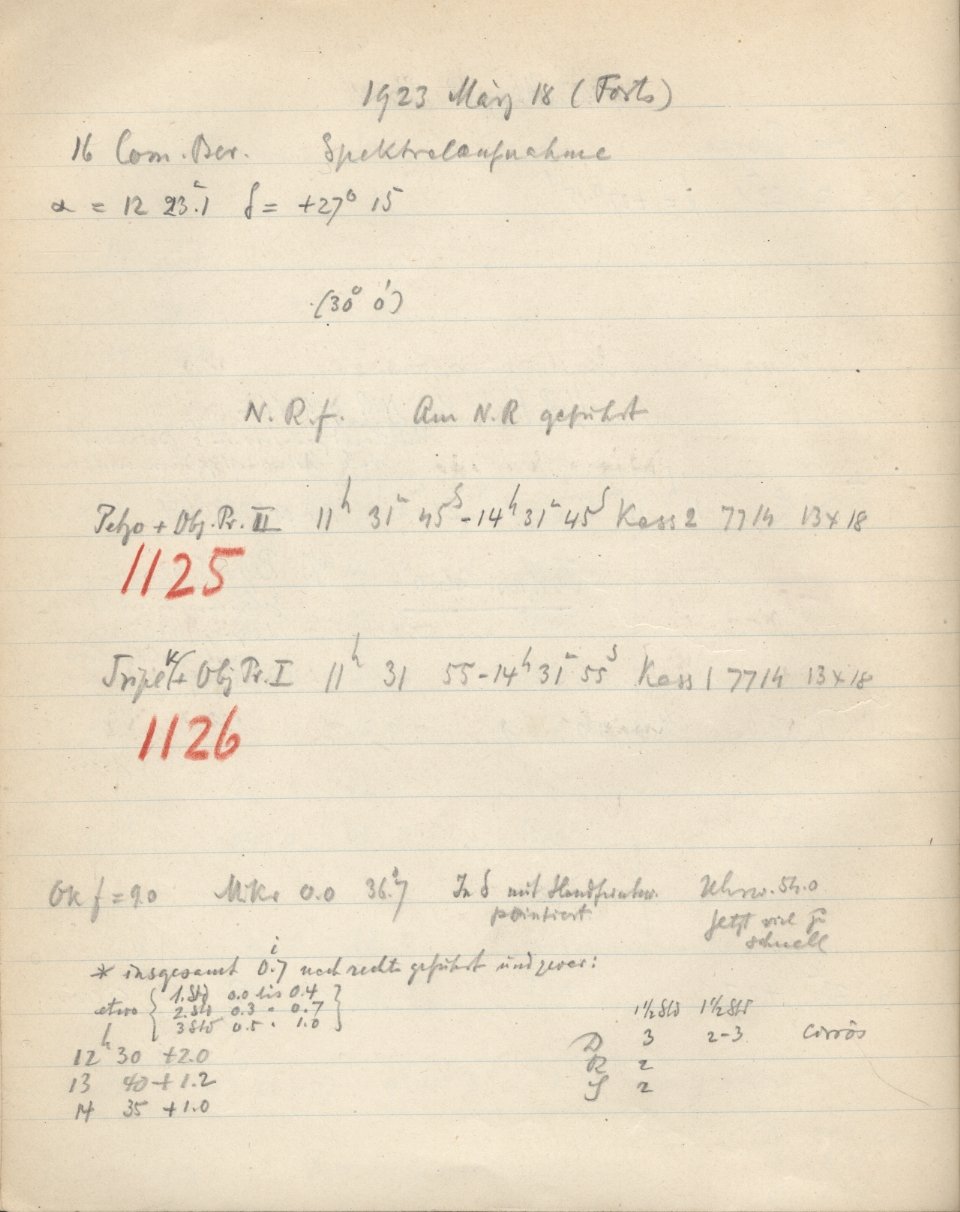 1923 März 18 (Forts)
16 Com. Ber. Spektralaufnahme
α = 12 23.1 δ = +27° 15
(30° 0')
N. R. f. Am N.R geführt
Petzo + Obj. Pr. II 11h 31m 45s - 14h 31m 45s Kass 2 7714 13x18
1125
Triplet + Obj Pr. I 11h 31 55 - 14h 31m 55s Kass 1 7714 13x18
1126
Ok f = 9.0 Mikr 0.0 36.7 In δ mit pointiert
Uhrw. 54.0
jetzt viel zu
schnell
* insgesamt 0.7 nach rechts geführt und zwar:
etwa { 1. Std 0.0 bis 0.4
2. Std 0.3 " 0.7
3 Std 0.5 " 1.0 }
12h 30 +2.0
13 40 +1.2
14 35 +1.0
1½ Std 1½ Std
D 3 2-3 cirrös
R 2
S 2